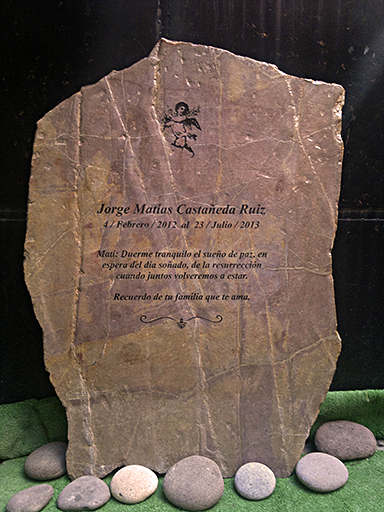 Jorge Matías Castañeda Ruiz
4 / Febrero / 2012 al 23 / Julio / 2013
Mati: Duerme tranquilo el sueño de paz, en
espera del día soñado, de la resurrección
cuando juntos volveremos a estar.
Recuerdo de tu familia que te ama.